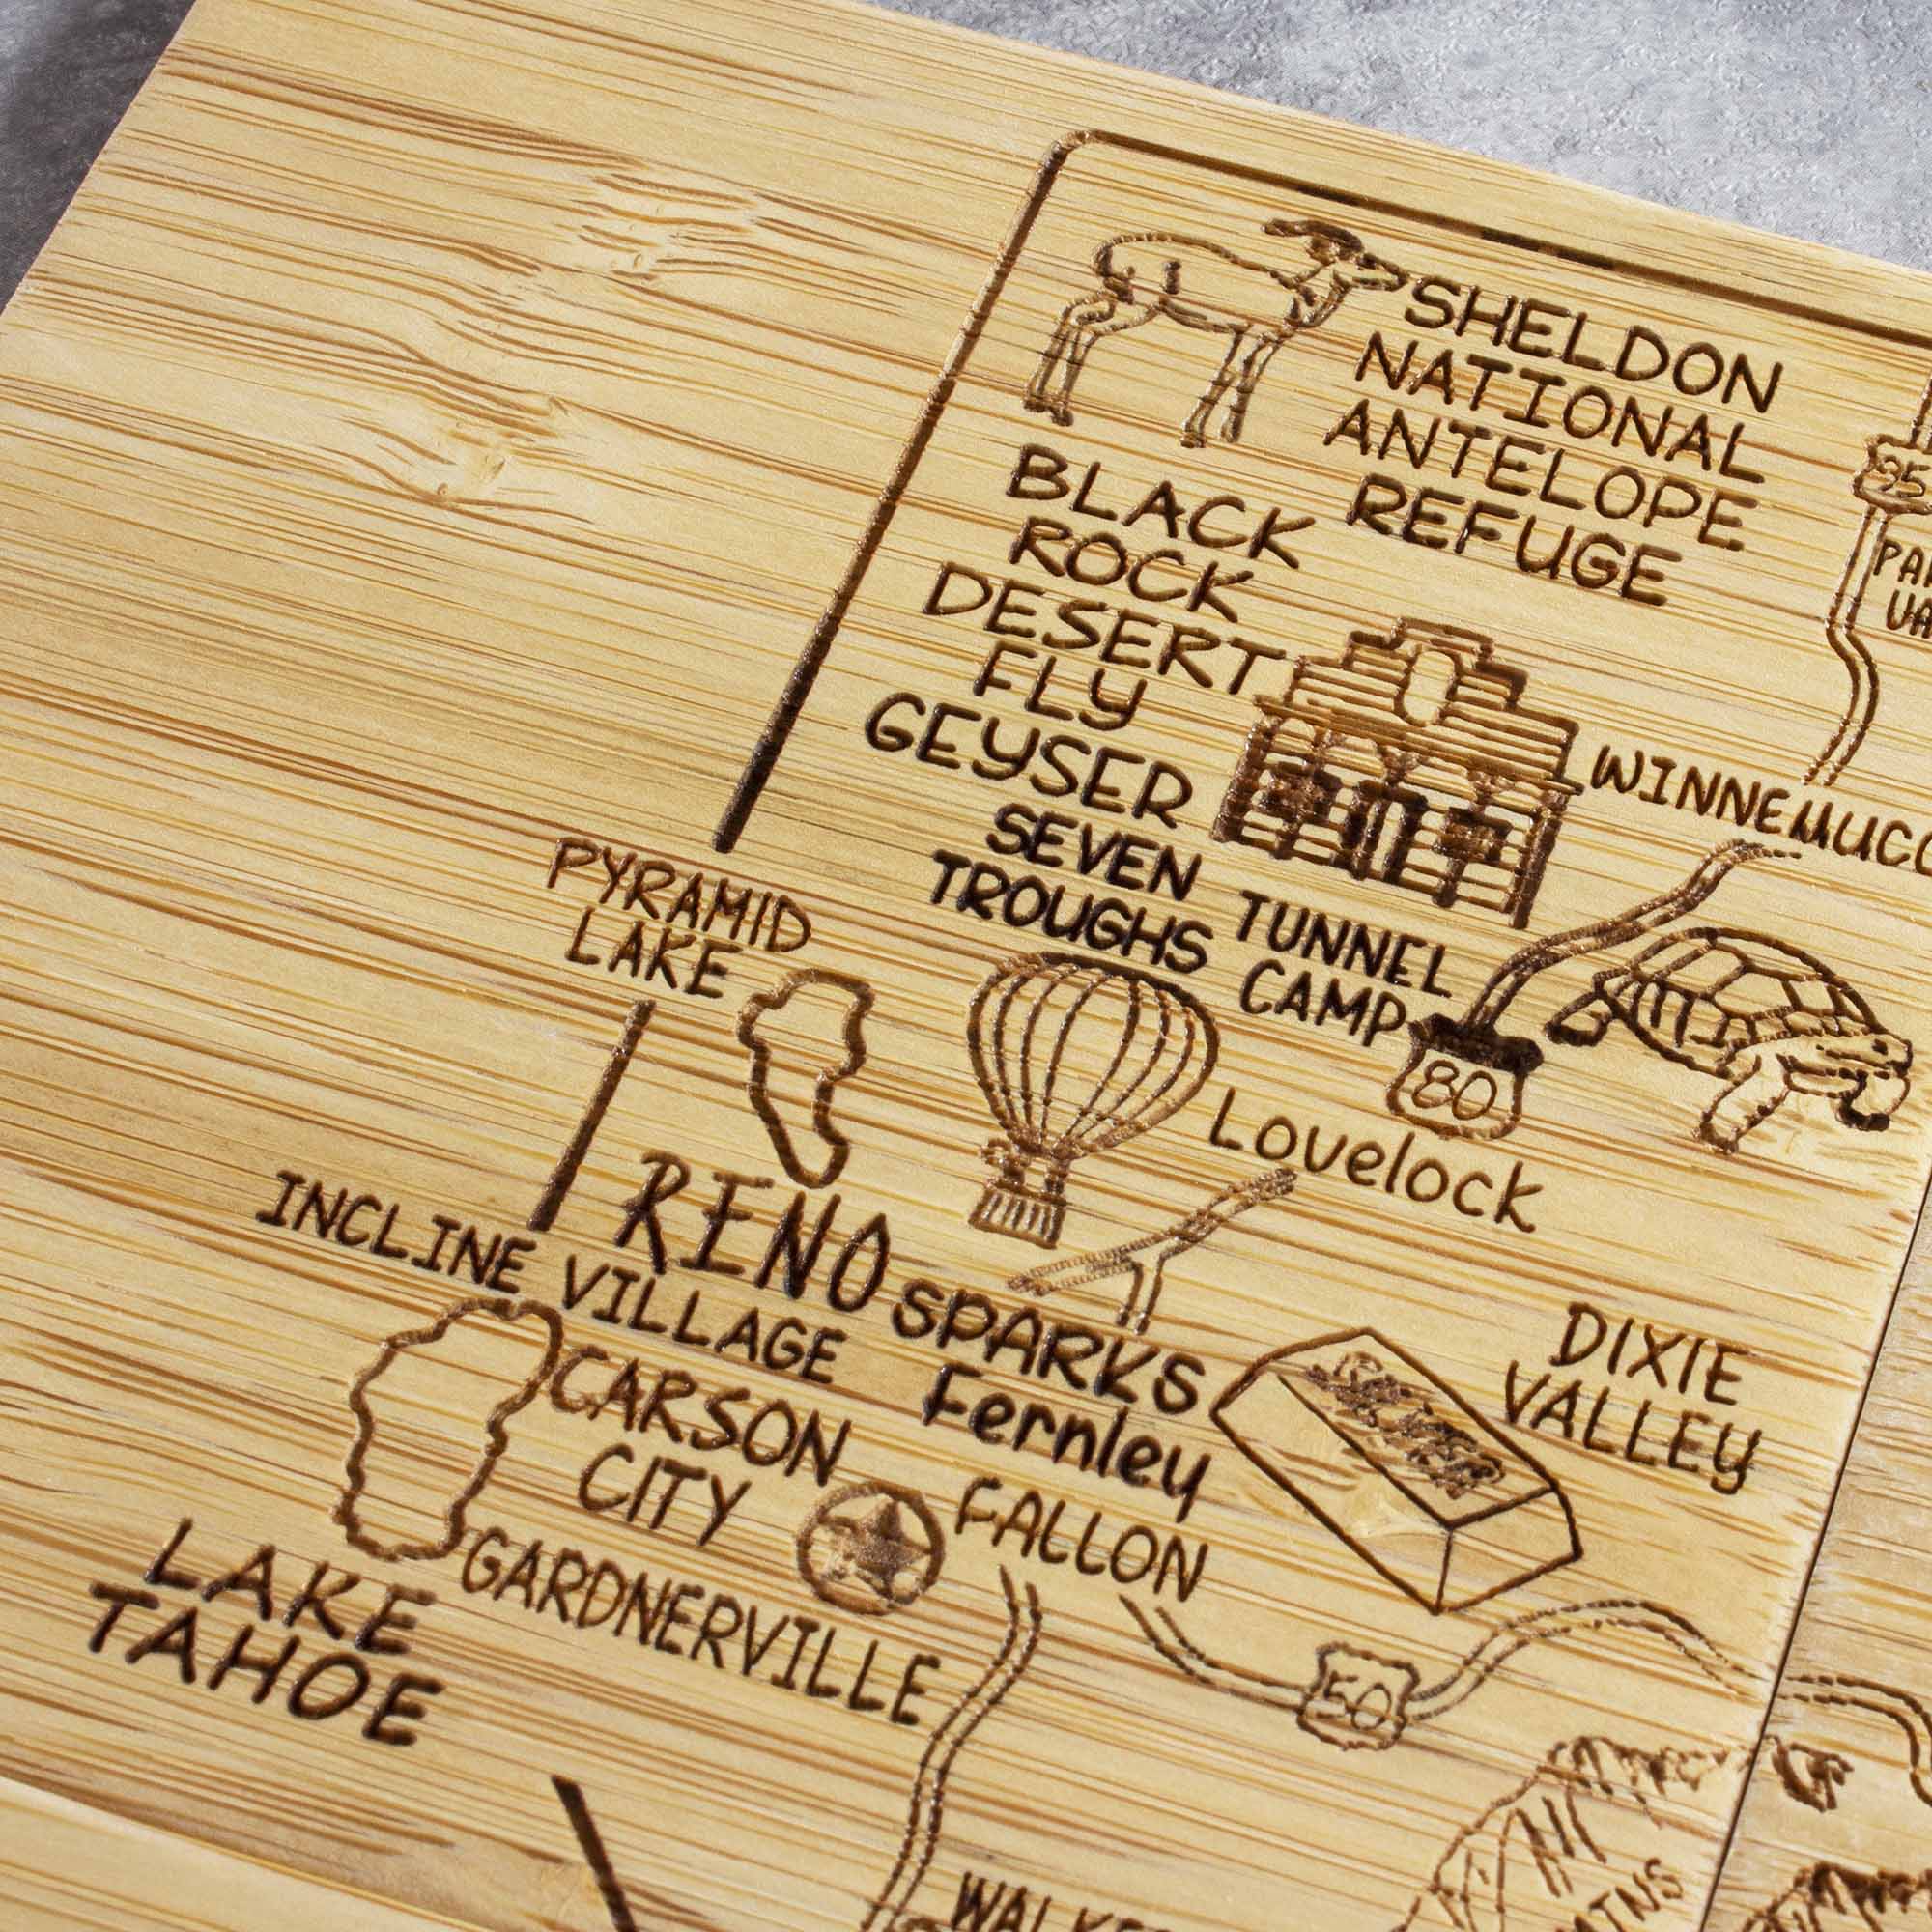 SHELDON
NATIONAL
ANTELOPE
REFUGE
95
BLACK
ROCK
DESERT
FLY
GEYSER
SEVEN
TROUGHS
TUNNEL
CAMP
80
PYRAMID
LAKE
Lovelock
RENO
SPARKS
Fernley
INCLINE VILLAGE
CARSON
CITY
FALLON
DIXIE
VALLEY
GARDNERVILLE
LAKE
TAHOE
50